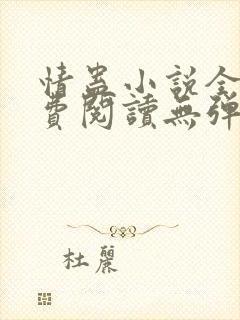 情蠱小說全
費閱讀無彈
杜麗